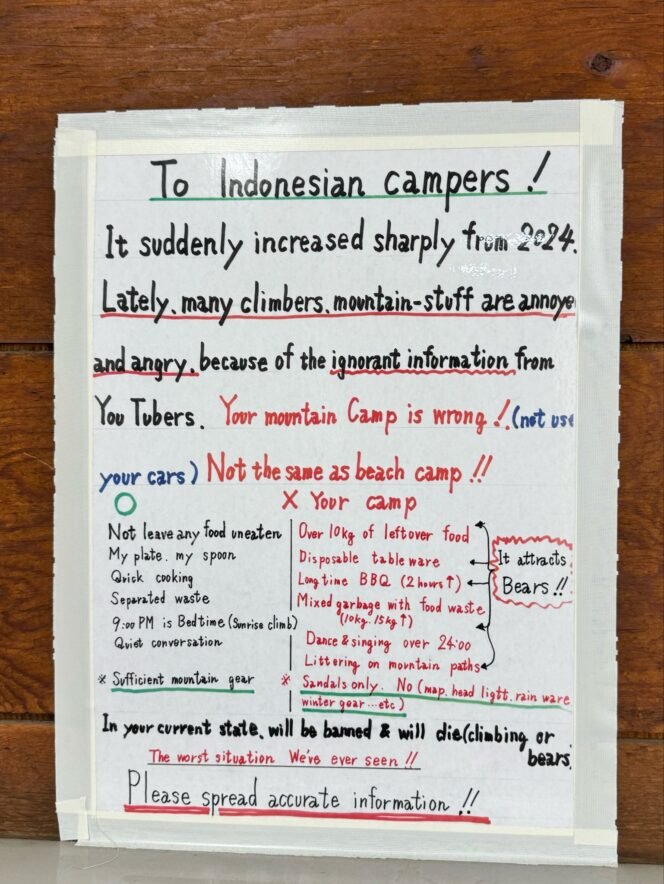 To Indonesian campers!
It suddenly increased sharply from 2024.
Lately, many climbers, mountain-stuff are annoye
and angry, because of the ignorant information from
You Tubers. Your mountain Camp is wrong!! (not use
your cars) Not the same as beach camp!!
○
× Your camp
Not leave any food uneaten
My plate, my spoon
Quick cooking
Separated waste
9:00 PM is Bedtime (Sunrise climb)
Quiet conversation
※ Sufficient mountain gear
Over 10kg of leftover food
Disposable table ware
Long time BBQ (2 hours↑)
Mixed garbage with food waste
(10kg. 15kg↑)
Dance & singing over 24:00
Littering on mountain paths
※ Sandals only. No (map. head light. rain ware
winter gear...etc)
It attracts
Bears!!
In your current state, will be banned & will die (climbing or
bears
The worst situation We've ever seen!!
Please spread accurate information!!